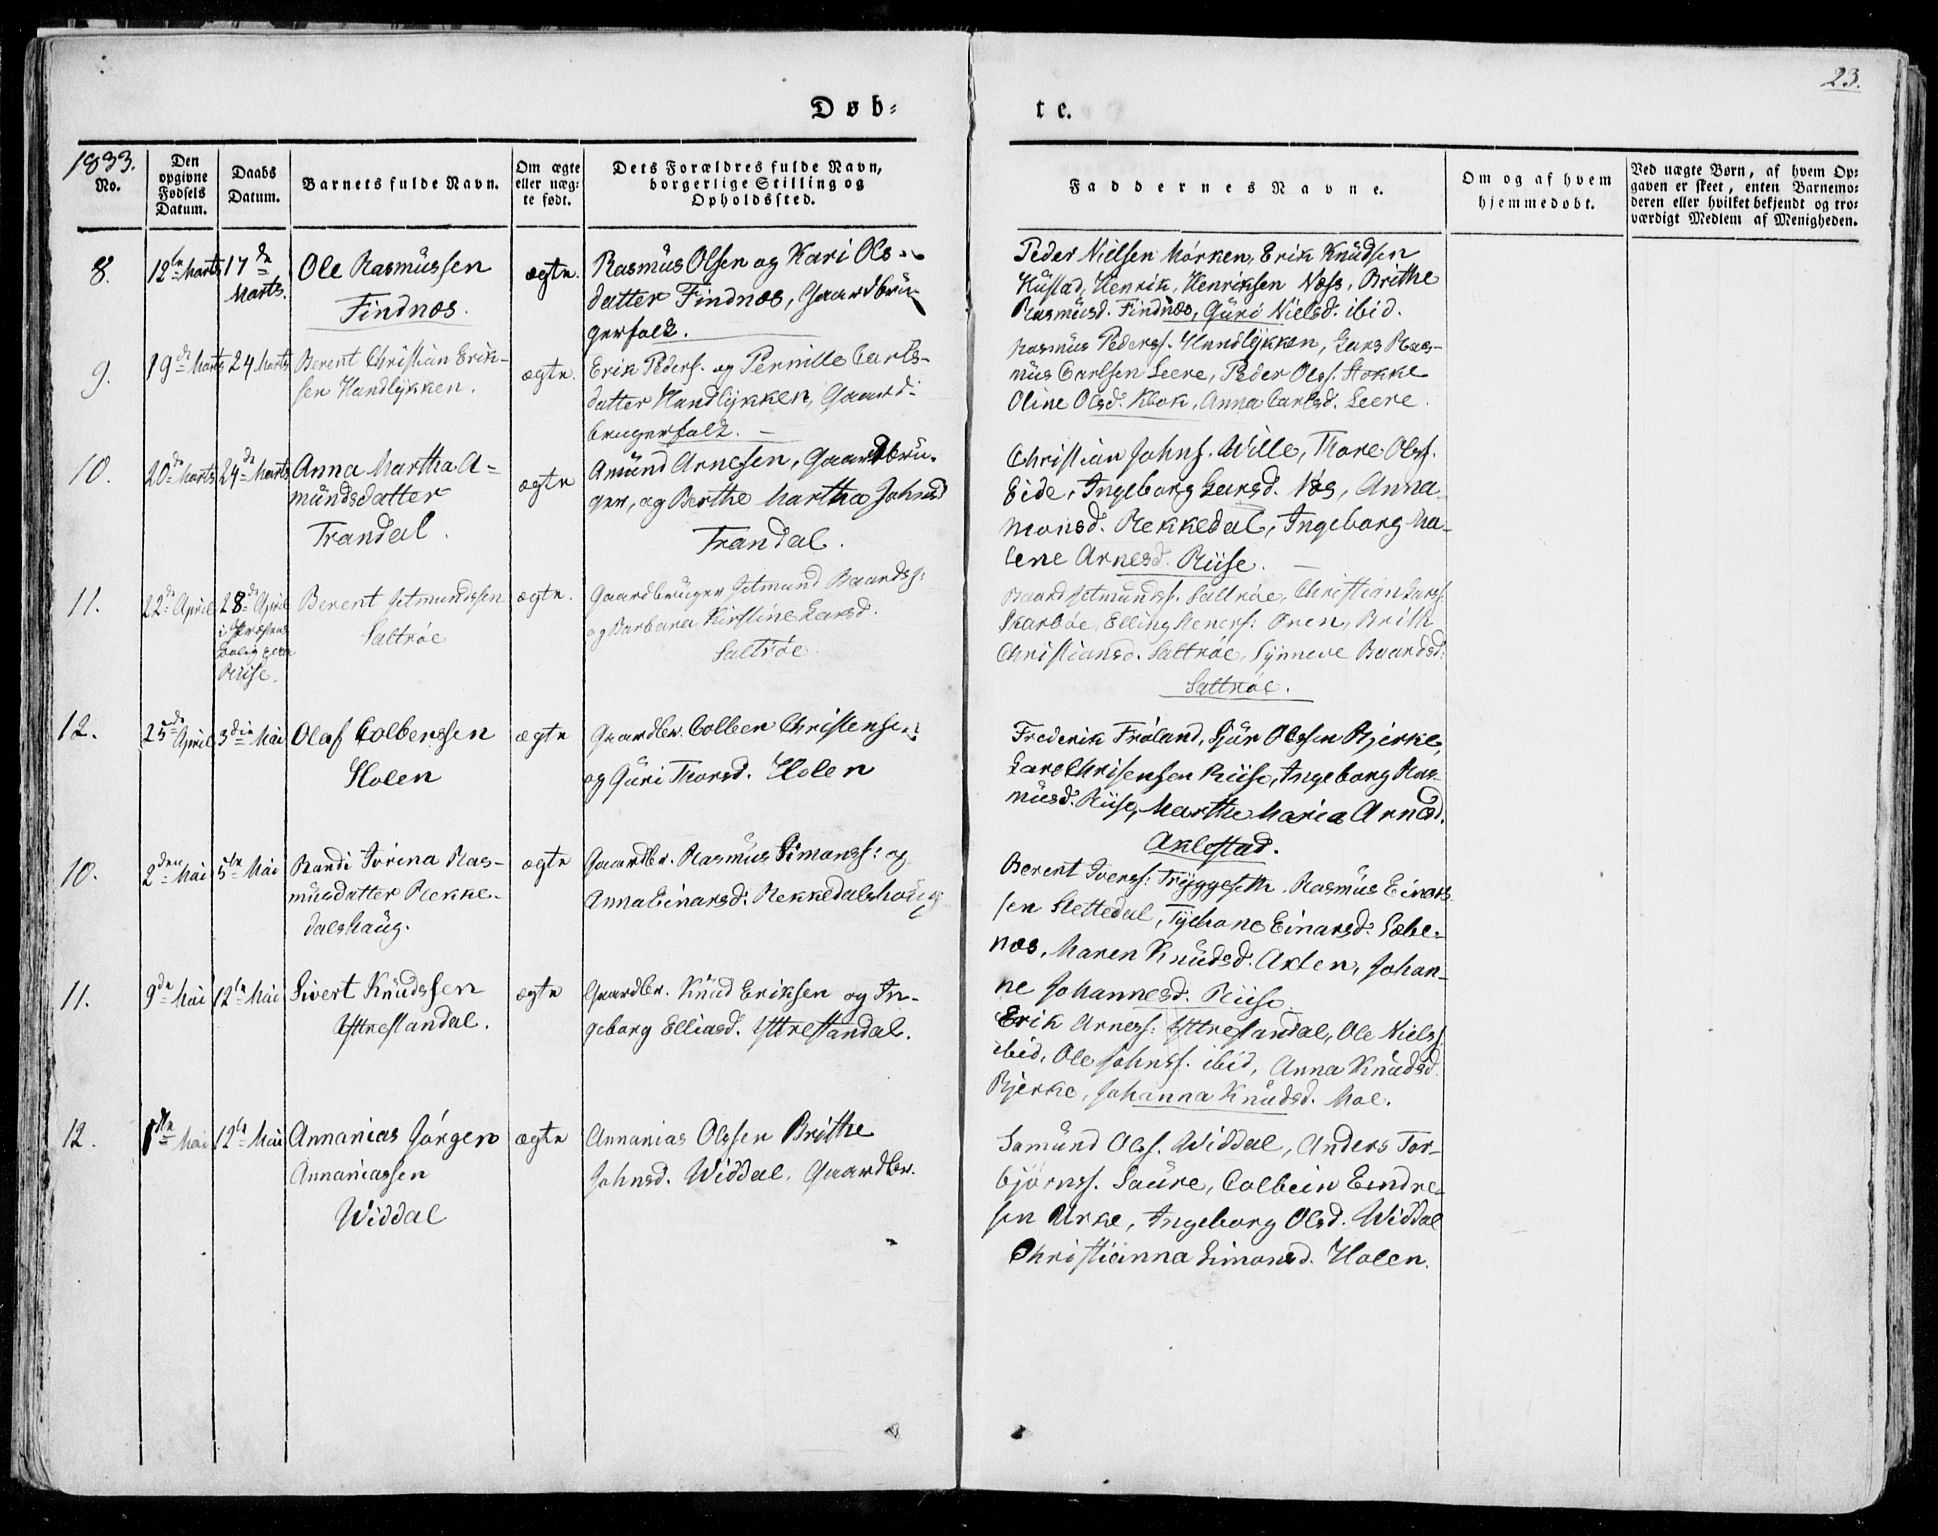 23.
Døb-
te.
1833.
No.
Den opgivne Fødsels Datum.
Daabs Datum.
Barnets fulde Navn.
Om ægte eller uægte født.
Dets Forældres fulde Navn, borgerlige Stilling og Opholdssted.
Faddernes Navne.
Om og af hvem hjemmedøbt.
Ved uægte Børn, af hvem Opgaven er skeet, enten Barnemoderen eller hvilket bekjendt og troværdigt Medlem af Menigheden.
8.
12te Marts
17de Marts.
Ole Rasmussen
Findnæs.
ægte.
Rasmus Olsen og Kari Ols-
datter Findnæs, Gaardbru-
gerfolk.
Peder Nielsen Mørken, Erik Knudsen
Hustad, Henrik Henriksen Næss, Brithe
Rasmusd. Findnæs, Guri Nielsd. ibid.
9.
19de Marts
24 Marts
Berent Christian Erik-
sen Hundlykken.
ægte.
Erik Peders. og Pernille Carls-
datter Hundlykken, Gaard-
brugerfolk. —
Rasmus Pederss. Hundlykken, Lars Ras-
mus Carlsen Leere, Peder Olss. Stokke
Oline Olsd. Klok, Anna Carlsd. Leere.
10.
20de Marts
24de Marts
Anna Martha A-
mundsdatter
Trandal.
ægte
Amund Arnesen, Gaardbru-
ger, og Berthe Martha Johnsd
Trandal.
Christian Johns. Wille, Thore Olss.
Eide, Ingeborg Larsd. Aas, Anna
Monsd. Rekkedal, Ingeborg Ma-
lene Arnesd. Riise. —
11.
22de April
28de April
Riise.
Berent Jetmundssen
Saltrøe
ægte.
Gaardbruger Jetmund Baardss:
og Barbara Kirstine Larsd.
Saltrøe.
Baard Jetmundss. Saltrøe, Christian Larss.
Skarbøe, Elling Steners: Øren, Brith
Christiansd. Saltrøe, Synneve Baardsd:
Saltrøe.
12.
25de April
3die Mai
Olaf Colbenssen
Holen
ægte
Gaardbr. Colben Christensen
og Guri Thorsd. Holen
Frederik Frøland, Sjur Olssen Bjerke,
Lars Chrisensen Riise, Ingeborg Ras-
musd. Riise, Marthe Maria Arnesd.
Aklestad.
10.
2den Mai
5te Mai
Randi Iverina Ras-
musdatter Rekke-
dalshaug.
ægte
Gaardbr. Rasmus Simonss: og
Anna Einarsd: Rekkedalshaug
Berent Iverss: Tryggeseth. Rasmus Einar-
sen Slettedal, Tychone Einarsd: Sæbø-
næs, Maren Knudsd. Axlen, Johan-
ne Johannesd. Riise.
11.
9de Mai
12te Mai
Sivert Knudssen
Yttrestandal.
ægte
Gaardbr. Knud Eriksen og In-
geborg Elliasd. Yttrestandal.
Erik Arness: Yttrestandal, Ole Nielss
ibid, Ole Johnss. ibid, Anna Knudsd.
Bjerke, Johanna Knudsd. Moe.
12.
Mai
12te Mai
Annanias Jørgen
Annaniassen
Widdal
ægte
Annanias Olssen Brithe
Johnsd. Widdal, Gaardbr.
Samund Olss. Widdal, Anders Tor-
bjørnss. Saure, Colbein Eindre-
sen Urke, Ingeborg Olsd. Widdal
Christianna Simonsd. Holen.